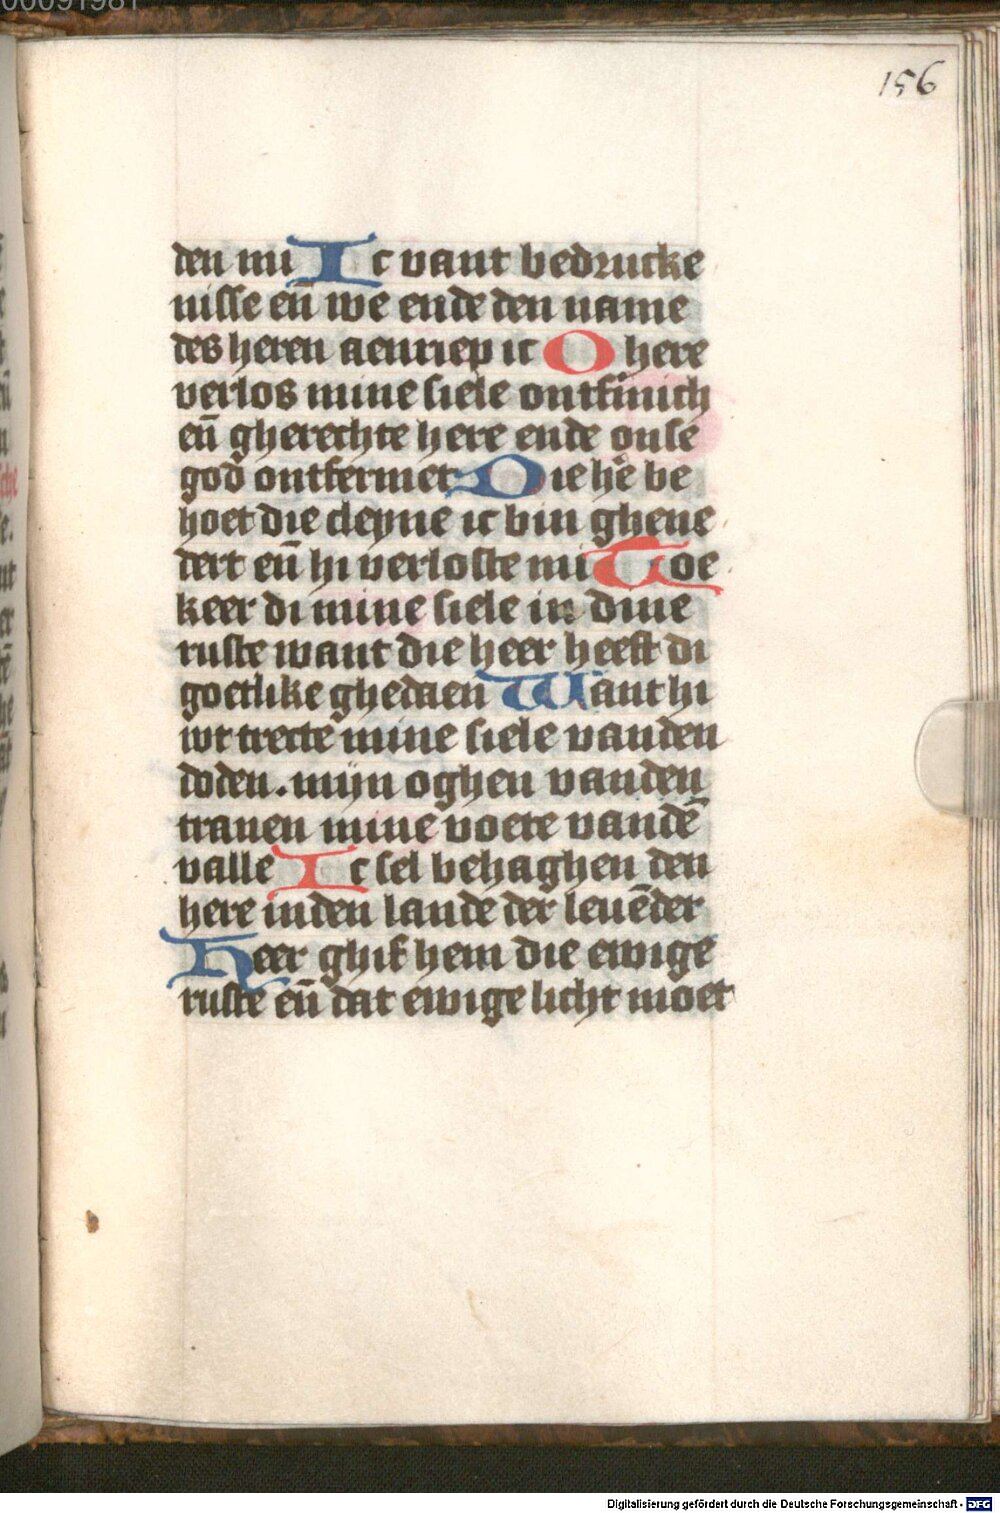 00091981
156
den mi Ic vant bedrucke
nisse en̄ we ende den name
des heren aenriep ic O here
verlos mine siele ontfinich
en̄ gherechte here ende onse
god ontfermet Die hēe be
hoet die cleyne ic bin ghene
dert en̄ hi verloste mi Toe
keer di mine siele in dine
ruste want die heer heeft di
goetlike ghedaen Want hi
wt trecte mine siele vanden
doden. mijn oghen vanden
tranen mine voete vandē
valle Ic sel behaghen den
here inden lande der leuēder
Heer ghif hem die ewige
ruste en̄ dat ewige licht moet
Digitalisierung gefördert durch die Deutsche Forschungsgemeinschaft - DFG